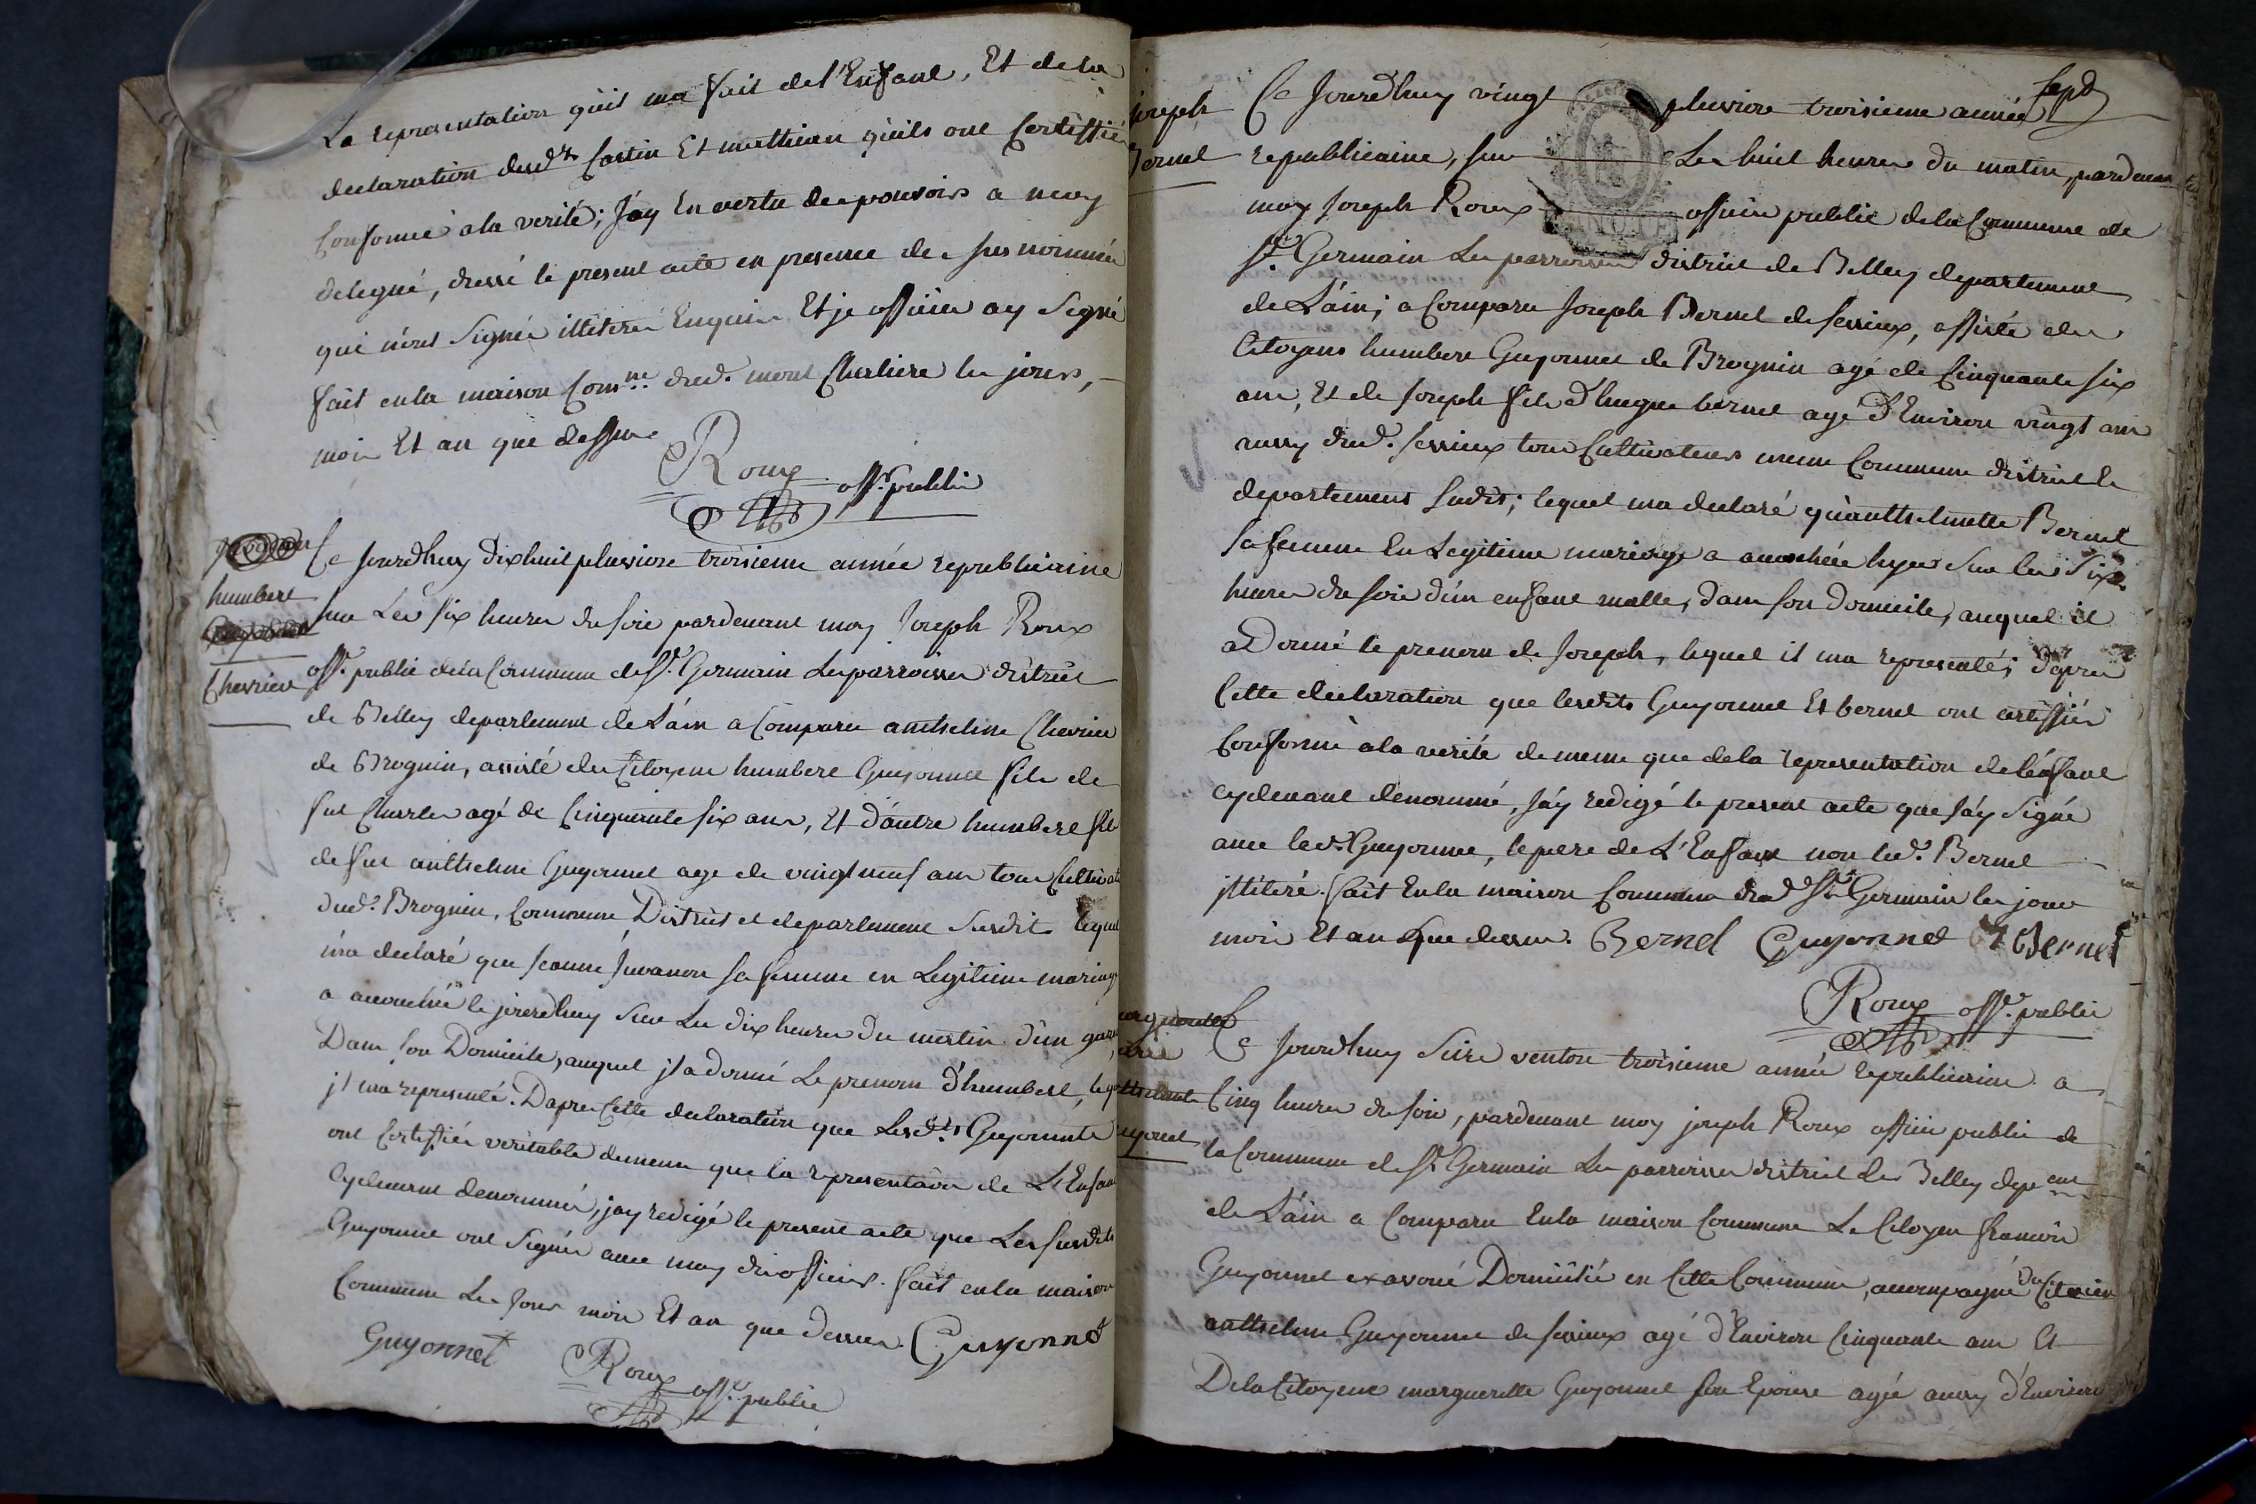 La representation quil ma fait de l'Enfant, Et de la
declaration desdts Cartin Et matthieu quils ont Certiffié
Conforme a la verité; J'ay En vertu des pouvoirs a moy
delegué, dressé le present acte en presence des sus nommés
qui n'ont Signé illiteré Enquis Et je officier ay Signé
fait en la maison Comne. dud. les jours,
mois Et an que dessus
Roux offr. public
humbert
Chevrier
Ce Jourdhuy dixhuit pluviose troisieme année republicaine
sur Les six heures du soir pardevant moy Joseph Roux
offr. public de la Commune de St. Germain Les parroisses district
de Belley departement de L'ain a Comparu anthelme Chevrier
de Brognin, assisté des Citoyens humbert Guyonnet fils de
feu Charles agé de Cinquante six ans, Et d'autre humbert fils
de feu anthelme Guyonnet age de vingt neuf ans tous Cultivat
dud. Brognin, Commune, District et departement Susdit lequel
m'a declaré que Jeanne Juvanon sa femme en Legitime mariage
a accouchée le jourdhuy Sur Les dix heures du matin d'un garcon
Dans son Domicile, auquel jl a donné Le prenom d'humbert, lequel
jl ma representé. Dapres Cette declaration que Lesdts Guyonnets
ont Certiffiés veritable dememe que la representation de L'Enfant
Cydevant denommé, jay redigé le present acte que Les susdits
Guyonnet ont Signés avec moy dit officier. fait en la maison
Commune Les Jour mois Et an que dessus. Guyonnet
Guyonnet Roux offr. public
sept
Joseph
Bernel
Ce Jourdhuy vingt pluviose troisieme année
republicaine, sur Les huit heures du matin, pardevant
moy Joseph Roux officier public de la Commune de
St. Germain Les parroisses district de Belley departement
de L'ain; a Comparu Joseph Bernel de sessieux, assisté des
Citoyens humbert Guyonnet de Brognin agé de Cinquante six
ans, Et de Joseph fils d'hugue bernel age d'Environ vingt ans
aussy dud. sessieux tous Cultivateurs meme Commune district et
departement susdit; lequel ma declaré qu'anthelmette Bernel
sa femme En Legitime mariage a accouchée hyer sur les six
heures du soir d'un enfant malle, dans son domicile, auquel il
a Donné le prenom de Joseph, lequel il ma representé; d'apres
Cette declaration que lesdits Guyonnet Et bernel ont certiffiés
Conforme à la verité de meme que de la representation de l'enfant
cydevant denommé, J'ay redigé le present acte que J'ay Signé
avec led. Guyonnet, le pere de L'Enfant non led. Bernel
jlliteré. fait En la maison Commune dud St. Germain les jour
mois Et an que dessus. Bernel Guyonnet Bernel
Roux offr. public
Ce Jourdhuy seize ventose troisieme année republicaine a
Cinq heures du soir, pardevant moy joseph Roux officier public de
la Commune de St. Germain Les parroisses district de Belley depent
de L'ain a Comparu En la maison Commune Le Citoyen francois
Guyonnet exavoué Domicilié en Cette Commune, accompagné du Citoien
anthelme Guyonnet de sessieux agé d'Environ Cinquante ans Et
De la Citoyene marguerite Guyonnet son Epouse agée aussy d'Environ